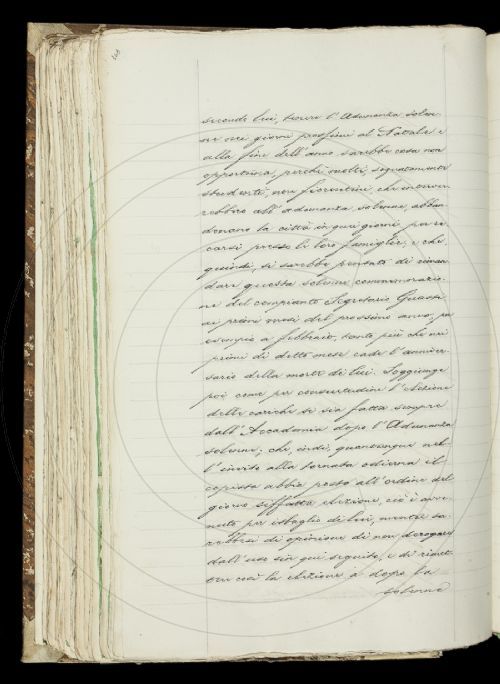 secondo lui, tenere l'Adunanza solen-
ne nei giorni prossimi al Natale e
alla fine dell'anno sarebbe cosa non
opportuna, perchè molti, segnatamente
studenti, non fiorentini, che interver-
rebbero all'adunanza solenne, abban-
donano la città in quei giorni per re-
carsi presso le loro famiglie; e che
quindi, si sarebbe pensato di riman-
dare questa solenne commemorazio-
ne del compianto Segretario Guasti
ai primi mesi del prossimo anno, per
esempio a febbraio, tanto più che nei
primi di detto mese cade l'anniver-
sario della morte di lui. Soggiunge
poi come per consuetudine l'elezione
delle cariche si sia fatta sempre
dall'Accademia dopo l'Adunanza
solenne; che, indi, quantunque nel-
l'invito alla tornata odierna il
copista abbia posto all'ordine del
giorno siffatta elezione, ciò è avve-
nuto per isbaglio di lui, mentre sa-
rebbesi di opinione di non derogare
dall'uso sin qui seguito, e di rimet-
tere così la elezione a dopo la
solenne